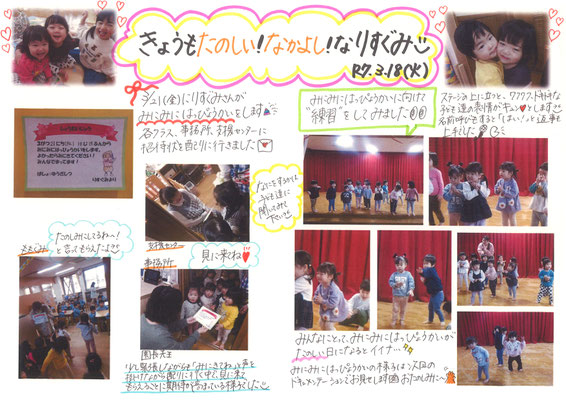 きょうもたのしい!なかよし!なりすぐみ
R7.3.18(火)
3/21(金)にりすぐみさんが
みにみにはっぴょうかいをします
各クラス、事務所、支援センターに
招待状を配りに行きました
みにみにはっぴょうかいに向けて
"練習"をしてみました
ステージの上に立つと、ワクワク、ドキドキな
子ども達の表情がキュン♥とします
名前呼びをすると「はーい!」と返事も
上手でした
なにをするかは
子ども達に
聞いてみて
下さい
たのしみにしてるね〜!
と言ってもらえたよ
ももぐみ
支援センター
事務所
見に来てね♥
園長先生
少し緊張しながらも「みにきてね」と声を
掛けながら配りに行く中で、見に来て
もらえることに期待が高まっている様子でした
みんなにとって、みにみにはっぴょうかいが
たのしい日になるとイイナ…
みにみにはっぴょうかいの様子は、次回の
ドキュメンテーションでお見せします おたのしみに〜